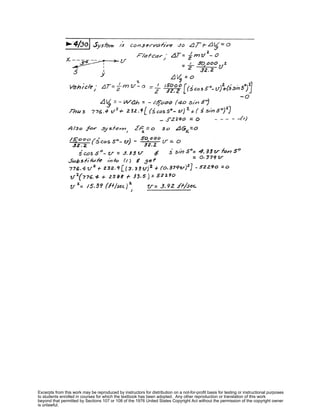 ►4/30 System is conservative so ΔT + ΔVg = 0
x ← → v Flatcar; ΔT = ½mv² - 0
= ½ 50,000/32.2 v²
ṡ y
ΔVg = 0
Vehicle; ΔT = ½mv² - 0 = ½ 15000/32.2 [(ṡ cos 5° - v)² + (ṡ sin 5°)²]
- 0
ΔVg = -WΔh = -15,000 (40 sin 5°)
Thus 776.4 v² + 232.9 [(ṡ cos 5° - v)² + (ṡ sin 5°)²]
- 52290 = 0 - - - - -(1)
Also for system, ΣFx = 0 so ΔGx = 0
15000/32.2 (ṡ cos 5° - v) - 50,000/32.2 v = 0
ṡ cos 5° - v = 3.33 v & ṡ sin 5° = 4.33 v tan 5°
= 0.379 v
Substitute into (1) & get
776.4 v² + 232.9 [(3.33 v)² + (0.379 v)²] - 52290 = 0
v² (776.4 + 2588 + 33.5) = 52290
v² = 15.39 (ft/sec)², v = 3.92 ft/sec
Excerpts from this work may be reproduced by instructors for distribution on a not-for-profit basis for testing or instructional purposes
to students enrolled in courses for which the textbook has been adopted. Any other reproduction or translation of this work
beyond that permitted by Sections 107 or 108 of the 1976 United States Copyright Act without the permission of the copyright owner
is unlawful.